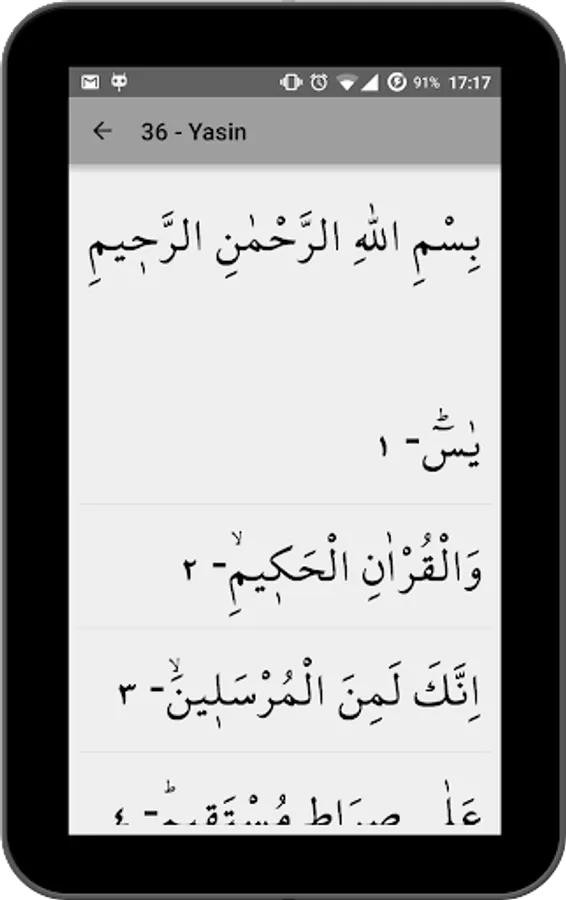 91% 17:17
36 - Yasin
بِسْمِ اللّٰهِ الرَّحْمٰنِ الرَّح۪يمِ
يٰسٓۜ - ١
وَالْقُرْاٰنِ الْحَك۪يمِۙ - ٢
اِنَّكَ لَمِنَ الْمُرْسَل۪ينَۙ - ٣
عَلٰى صِرَاطٍ مُسْتَق۪يمٍۜ - ٤